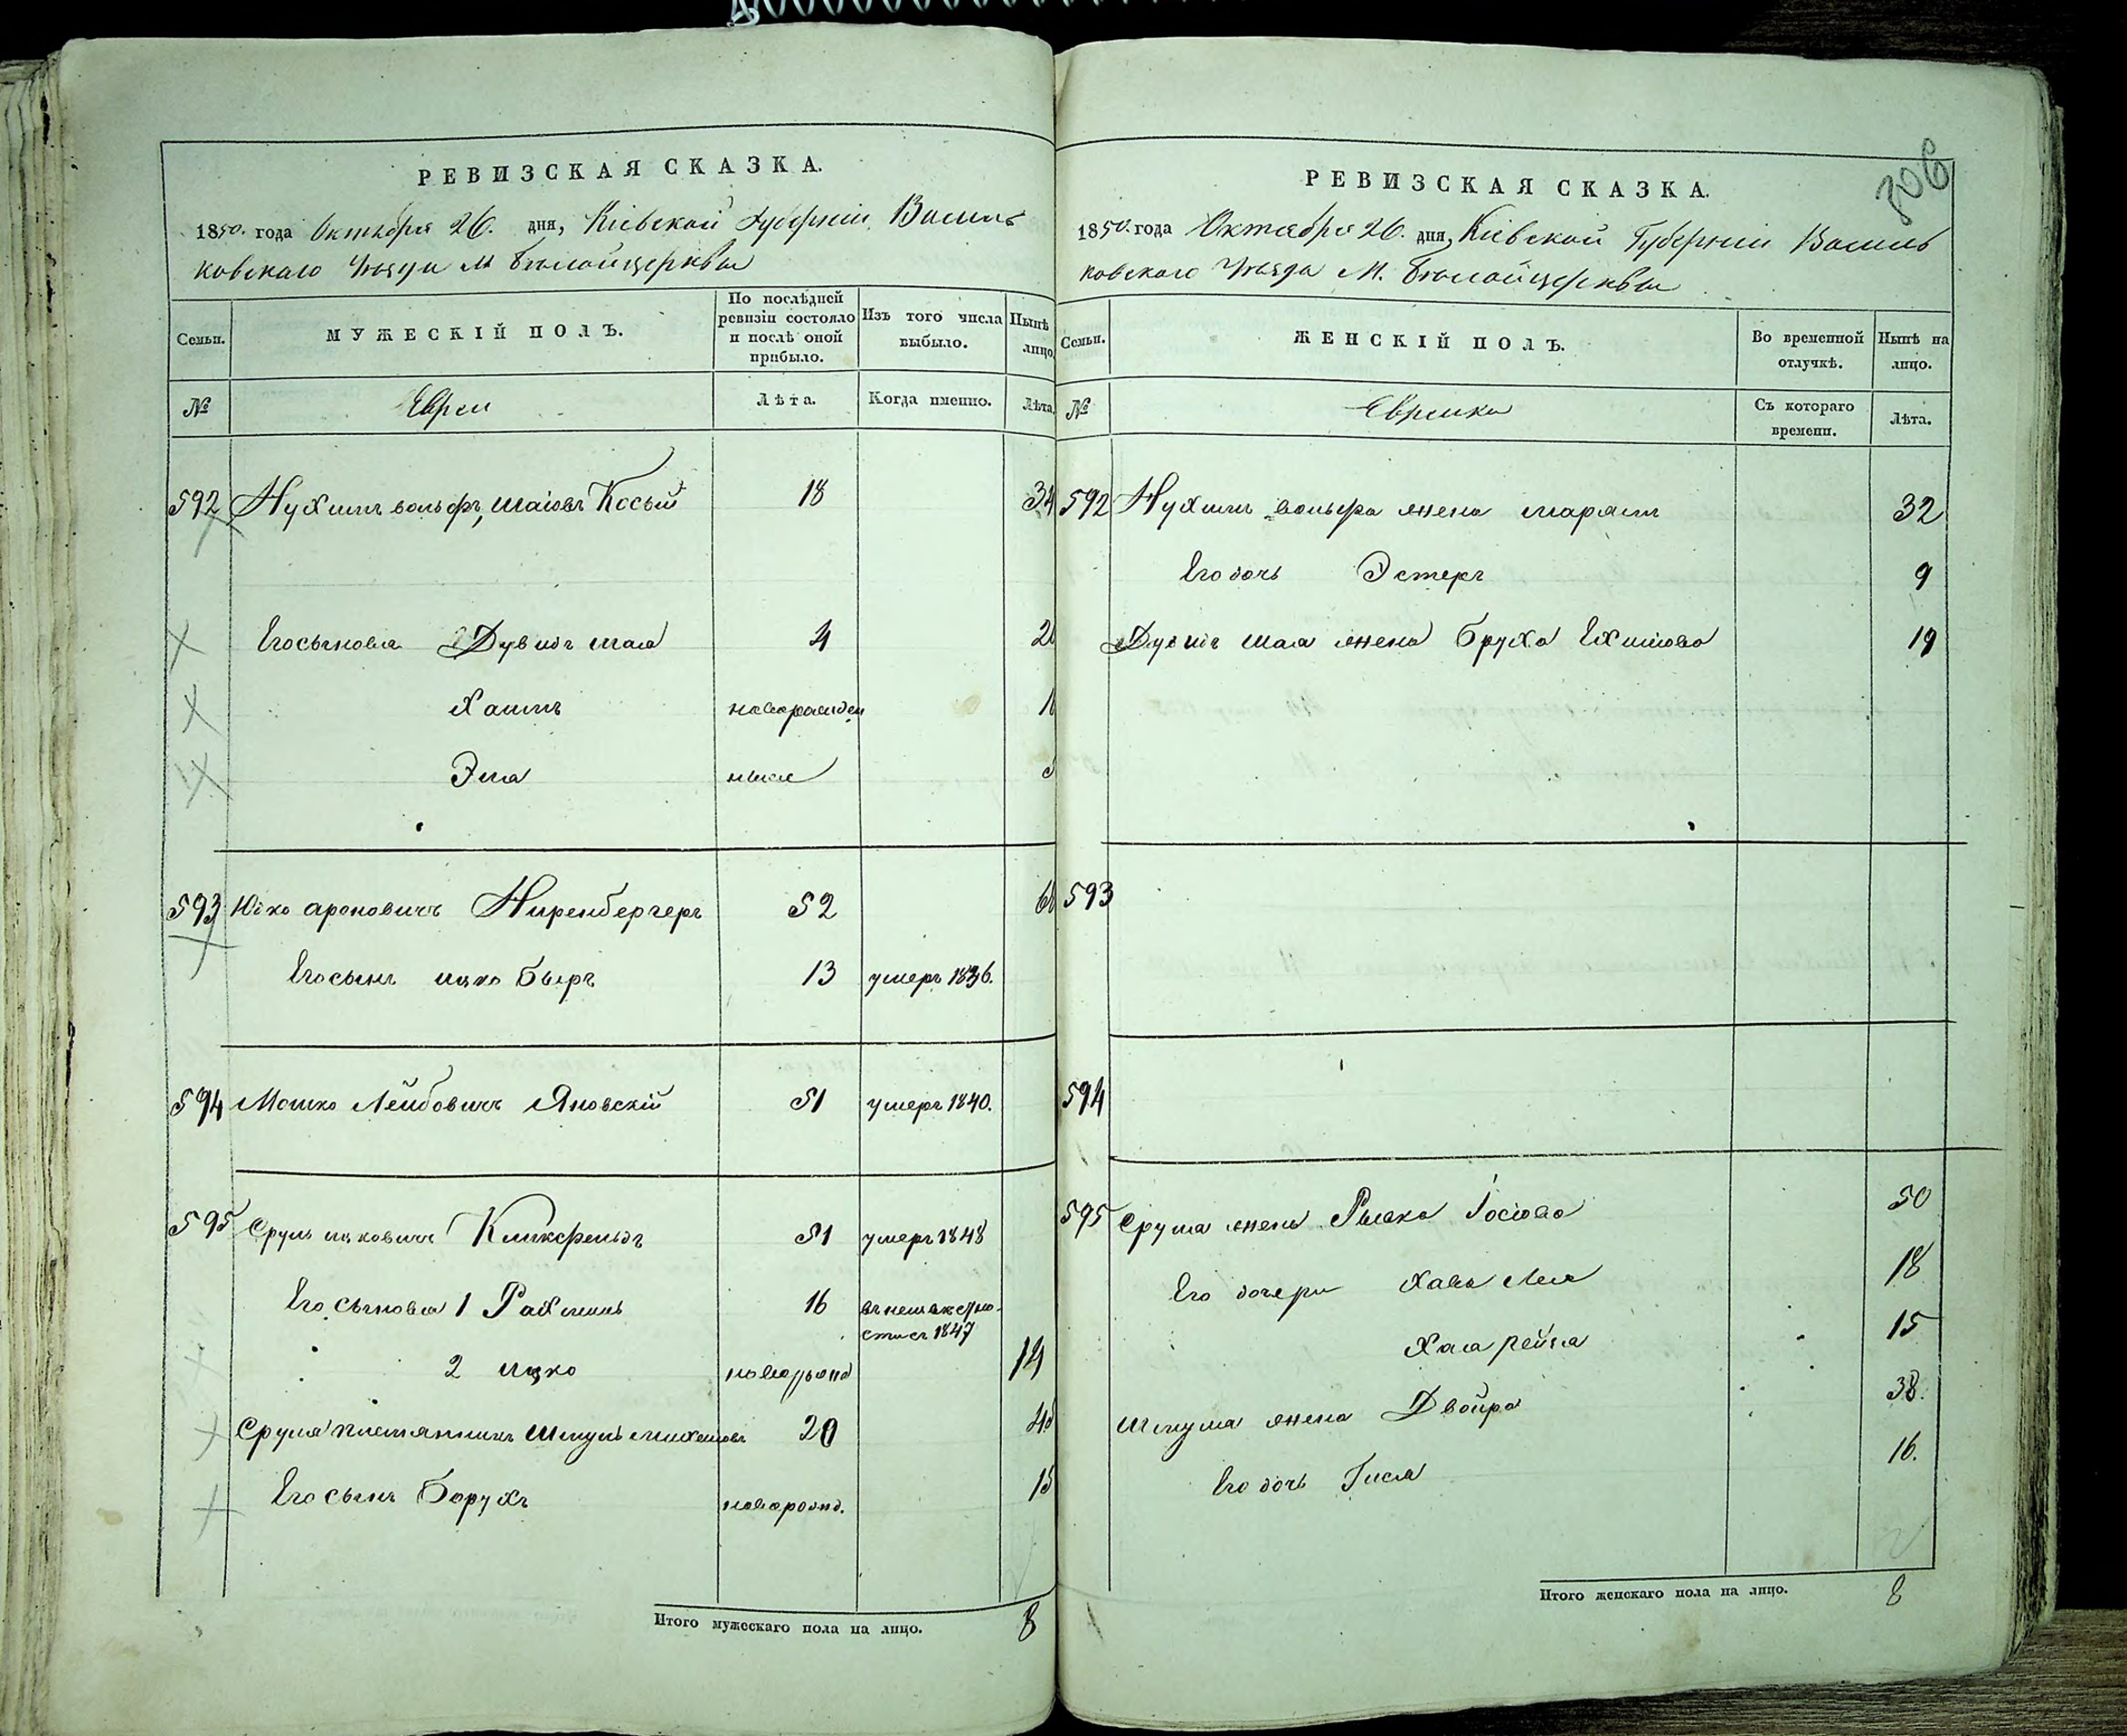 РЕВИЗСКАЯ СКАЗКА.
1850. года Октября 26. дня, Кіевской Губерніи Василь
ковскаго Уѣзда М Бѣлойцерквы
Семьи.
МУЖЕСКІЙ ПОЛЪ.
По послѣдней ревизіи состояло и послѣ оной прибыло.
Изъ того числа выбыло.
Нынѣ лицо
№
Евреи
Лѣта.
Когда именно.
Лѣта.
592 Нухимъ вольфъ, шаіовъ Косый 18 34
Его сыновья Дувидъ шая 4 20
Хаимъ новорожден
Эля
593 Юско ароновичъ Ниренбергеръ 52 68
Его сынъ ицко Беръ 13 умеръ 1836.
594 Мошко Лейбовичъ Яновскій 51 умеръ 1840.
595 Сруль ицковичъ 51 умеръ 1848
Его сыновья 1 Рахмиль 16 въ неизвѣстно-
сти съ 1847
2 ицко новорожд 14
Сруля племянникъ Шмуль 20
Его сынъ Борухъ новорожд. 15
Итого мужескаго пола на лицо. 8
306
РЕВИЗСКАЯ СКАЗКА.
1850. года Октября 26. дня, Кіевской Губерніи Василь
ковскаго Уѣзда М. Бѣлойцерквы
Семьи.
ЖЕНСКІЙ ПОЛЪ.
Во временной отлучкѣ.
Нынѣ на лицо.
№
Еврейки
Съ котораго времени.
Лѣта.
592 Нухимъ вольфа жена марьям 32
Его дочь Эстеръ 9
Дувидъ шая жена Бруха 19
593
594
595 Сруля жена Рывка Іосіова 50
Его дочери Хава Лея 18
Хая рейза 15
Шмуля жена Двойра 38.
Его дочь Гися 16.
Итого женскаго пола на лицо. 8